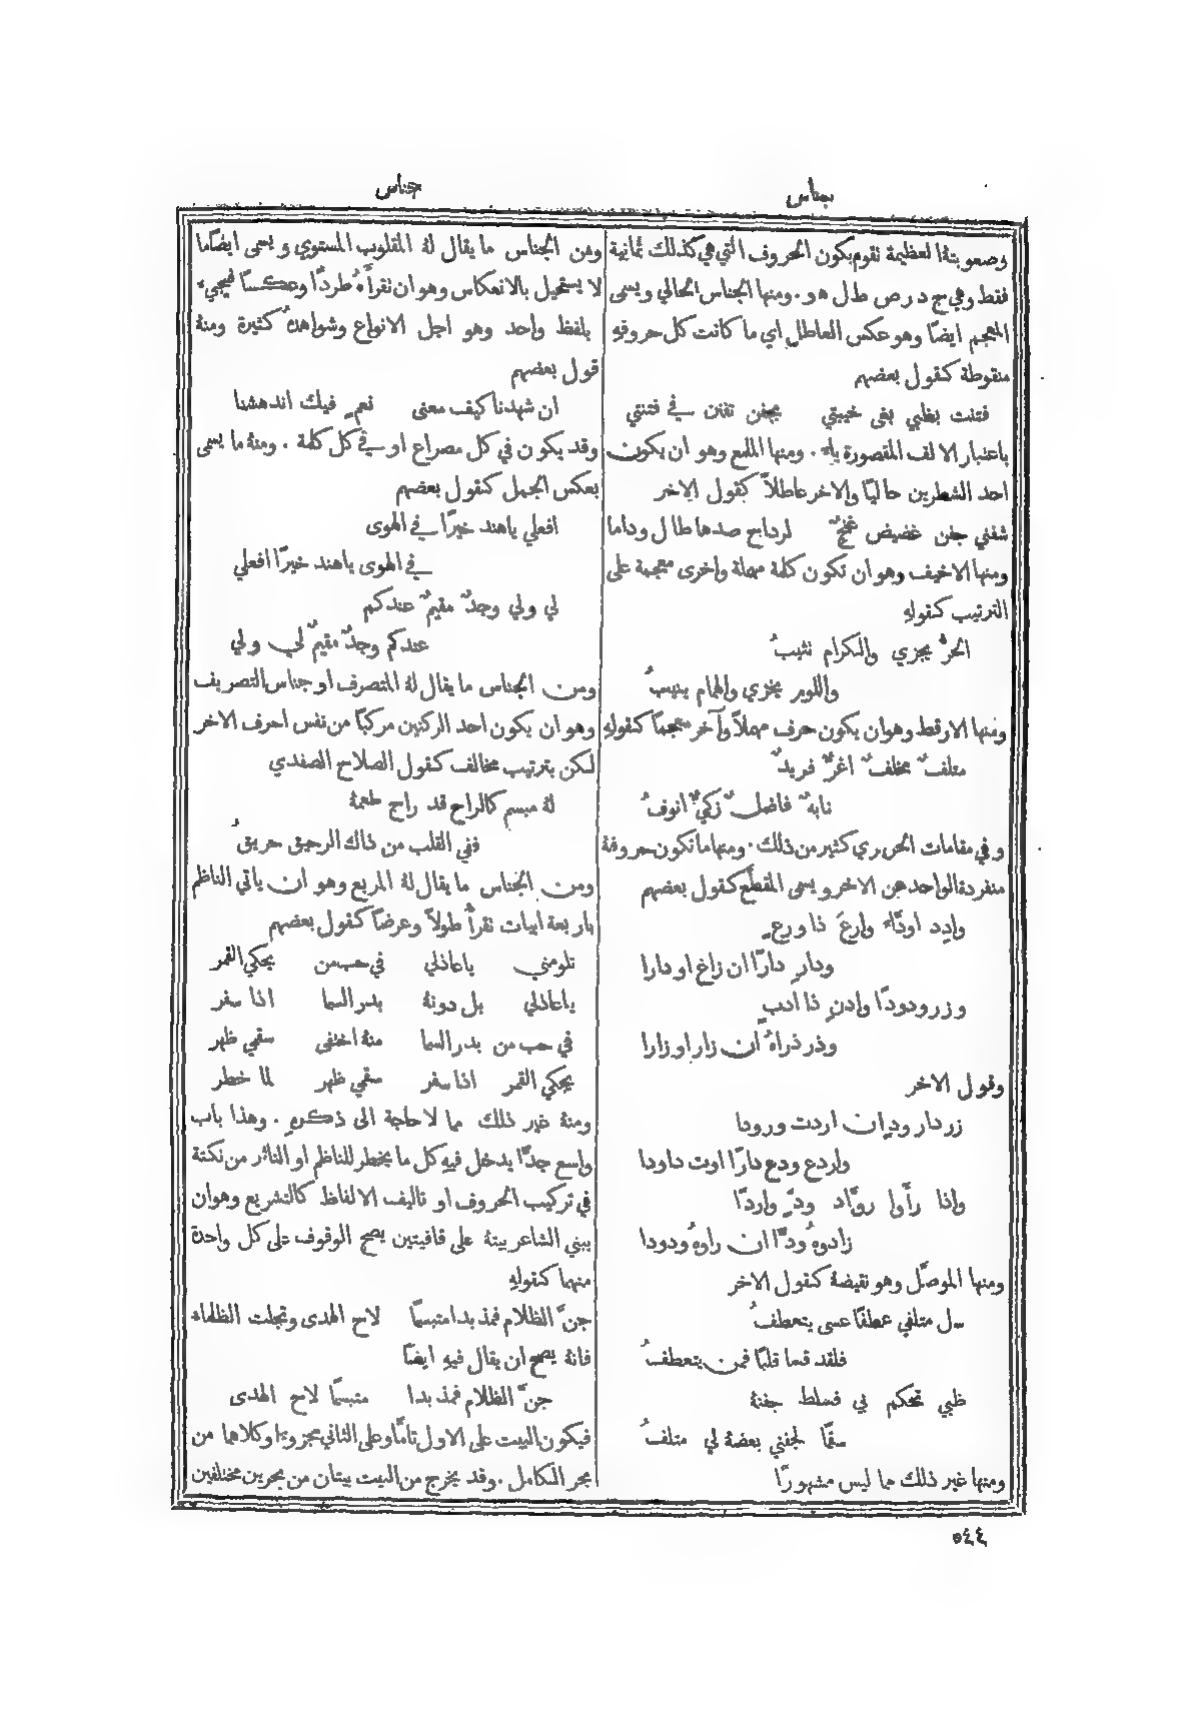 جناس
جناس
وصعوبتهُ العظيمة نقوم بكون الحروف التي هي كذلك ثمانية
فقط وهي ح د ر ص ط ل ه و. ومنها الجناس الحالي ويسمى
المعجم ايضًا وهو عكس العاطل اي ما كانت كل حروفهِ
منقوطة كقول بعضهم
فتنت بظبي بغى خيبتي بجفن تفنن في فتنتي
باعنبار الالف المقصورة ياء. ومنها الملمع وهو ان يكون
احد الشطرين حاليًا والاخر عاطلاً كقول الاخر
شفني جفن غضيض غنجٌ لرداح صدها طال وداما
ومنها الاخيف وهو ان تكون كلمة مهملة واخرى معجمة على
الترتيب كقولهِ
الحرُّ يجزي والكرام نثيبُ
واللوم يخزي والهمام ينيبُ
ومنها الارقط وهو ان يكون حرف مهملاً وآخر معجمًا كقولهِ
متلفٌ مخلفٌ اغرٌّ فريدٌ
نابهٌ فاضلٌ زكيٌّ انوفُ
وفي مقامات الحريري كثير من ذلك. ومنها ما تكون حروفهُ
منفردة الواحد عن الاخر ويسمى المقطَّع كقول بعضهم
وادِد اودَّاء وارعَ ذا ورعٍ
ودارِ دارًا ان زاغ او دارا
وزر ودودًا وادنِ ذا ادبٍ
وذر ذراهُ ان زار او زارا
وقول الاخر
زر دار ودٍ ان اردت ورودا
واردع ودع دارًا اوت داودا
واذا رأَوا روَّاد ودٍّ واردًا
زادوهُ ودًّا ان راوهُ ودودا
ومنها الموصَّل وهو نقيضهُ كقول الاخر
سل متلفي عطفًا عسى يتعطفُ
فلقد قسا قلبًا فمن يتعطفُ
ظبي تحكم في فسلط جفنهُ
سقمًا لجفني بعضهُ لي متلفُ
ومنها غير ذلك مما ليس مشهورًا
ومن الجناس ما يقال لهُ المقلوب المستوي ويسمى ايضًا ما
لا يستحيل بالانعكاس وهو ان نقرأَهُ طردًا وعكسًا فيجيء
بلفظ واحد وهو اجل الانواع وشواهدهُ كثيرة ومنهُ
قول بعضهم
ان شهدنا كيف معنى نعم فيك اندهشنا
وقد يكون في كل مصراع او في كل كلمة. ومنهُ ما يسمى
بعكس الجمل كقول بعضهم
افعلي ياهند خيرًا في الهوى
في الهوى ياهند خيرًا افعلي
لي ولي وجدٌ مقيمٌ عندكم
عندكم وجدٌ مقيمٌ لي ولي
ومن الجناس ما يقال لهُ المتصرف او جناس التصريف
وهو ان يكون احد الركنين مركبًا من نفس احرف الاخر
لكن بترتيب مخالف كقول الصلاح الصفدي
لهُ مبسم كالراح قد راج طعمهُ
ففي القلب من ذاك الرحيق حريقُ
ومن الجناس ما يقال لهُ المربع وهو ان ياتي الناظم
باربعة ابيات نقرأُ طولاً وعرضًا كقول بعضهم
تلومني ياعاذلي في حب من يحكي القمر
ياعاذلي بل دونهُ بدر السما اذا سفر
في حب من بدر السما منهُ اختفى سقمي ظهر
يحكي القمر اذا سفر سقمي ظهر لما خطر
ومنهُ غير ذلك مما لا حاجة الى ذكرهِ. وهذا باب
واسع جدًّا يدخل فيهِ كل ما يخطر للناظم او الناثر من نكتة
في تركيب الحروف او تاليف الالفاظ كالتشريع وهو ان
يبني الشاعر بيتهُ على قافيتين يصح الوقوف على كل واحدة
منهما كقولهِ
جنَّ الظلام فمذ بدا متبسمًا لاح الهدى وتجلت الظلماء
فانهُ يصح ان يقال فيهِ ايضًا
جنَّ الظلام فمذ بدا متبسمًا لاح الهدى
فيكون البيت على الاول تامًّا وعلى الثاني مجزوءًا وكلاهما من
بحر الكامل. وقد يخرج من البيت بيتان من بحرين مختلفين
٥٤٤